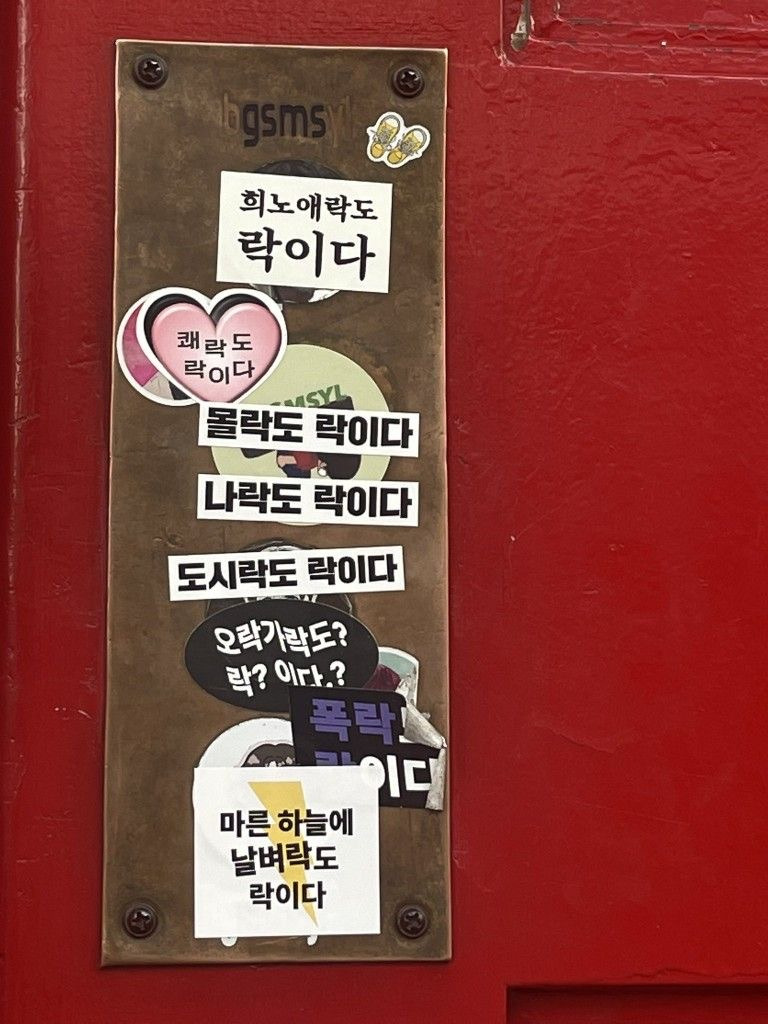 bgsmsyl
희노애락도
락이다
쾌락도
락이다
GSMSYL
몰락도 락이다
나락도 락이다
도시락도 락이다
오락가락도?
락? 이다.?
폭락
락이다
마른 하늘에
날벼락도
락이다